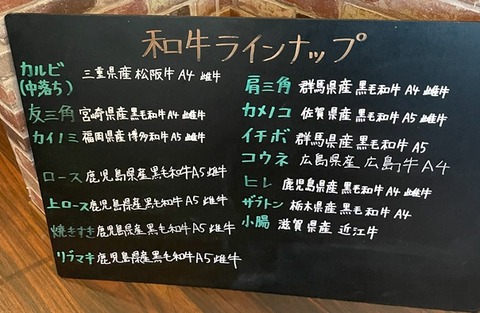 和牛ラインナップ
カルビ
(中落ち)
三重県産 松阪牛 A4 雌牛
友三角 宮崎県産 黒毛和牛 A4 雌牛
カイノミ 福岡県産 博多和牛 A5 雌牛
ロース 鹿児島県産黒毛和牛A5雌牛
上ロース 鹿児島県産黒毛和牛A5雌牛
焼きすき 鹿児島県産黒毛和牛A5雌牛
リブマキ 鹿児島県産黒毛和牛A5雌牛
肩三角 群馬県産 黒毛和牛 A4 雌牛
カメノコ 佐賀県産 黒毛和牛 A5 雌牛
イチボ 群馬県産 黒毛和牛 A5
コウネ 広島県産 広島牛 A4
ヒレ 鹿児島県産 黒毛和牛 A4 雌牛
ザブトン 栃木県産 黒毛和牛 A4
小腸 滋賀県産 近江牛